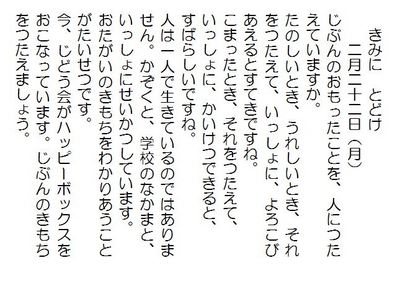 きみに　とどけ
二月二十二日（月）
じぶんのおもったことを、人につた
えていますか。
たのしいとき、うれしいとき、それ
をつたえて、いっしょに、よろこび
あえるとすてきですね。
こまったとき、それをつたえて、
いっしょに、かいけつできると、
すばらしいですね。
人は一人で生きているのではありま
せん。かぞくと、学校のなかまと、
いっしょにせいかつしています。
おたがいのきもちをわかりあうこと
がたいせつです。
今、じどう会がハッピーボックスを
おこなっています。じぶんのきもち
をつたえましょう。